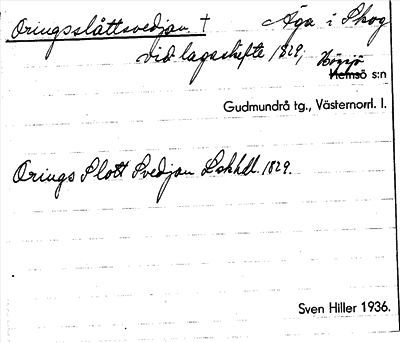 Öringsslåttsvedjan † Äga i Skog
vid lagaskifte 1829, Högsjö
Hemsö s:n
Gudmundrå tg., Västernorrl. l.
Örings Slott Svedjan Lskhdl. 1829.
Sven Hiller 1936.